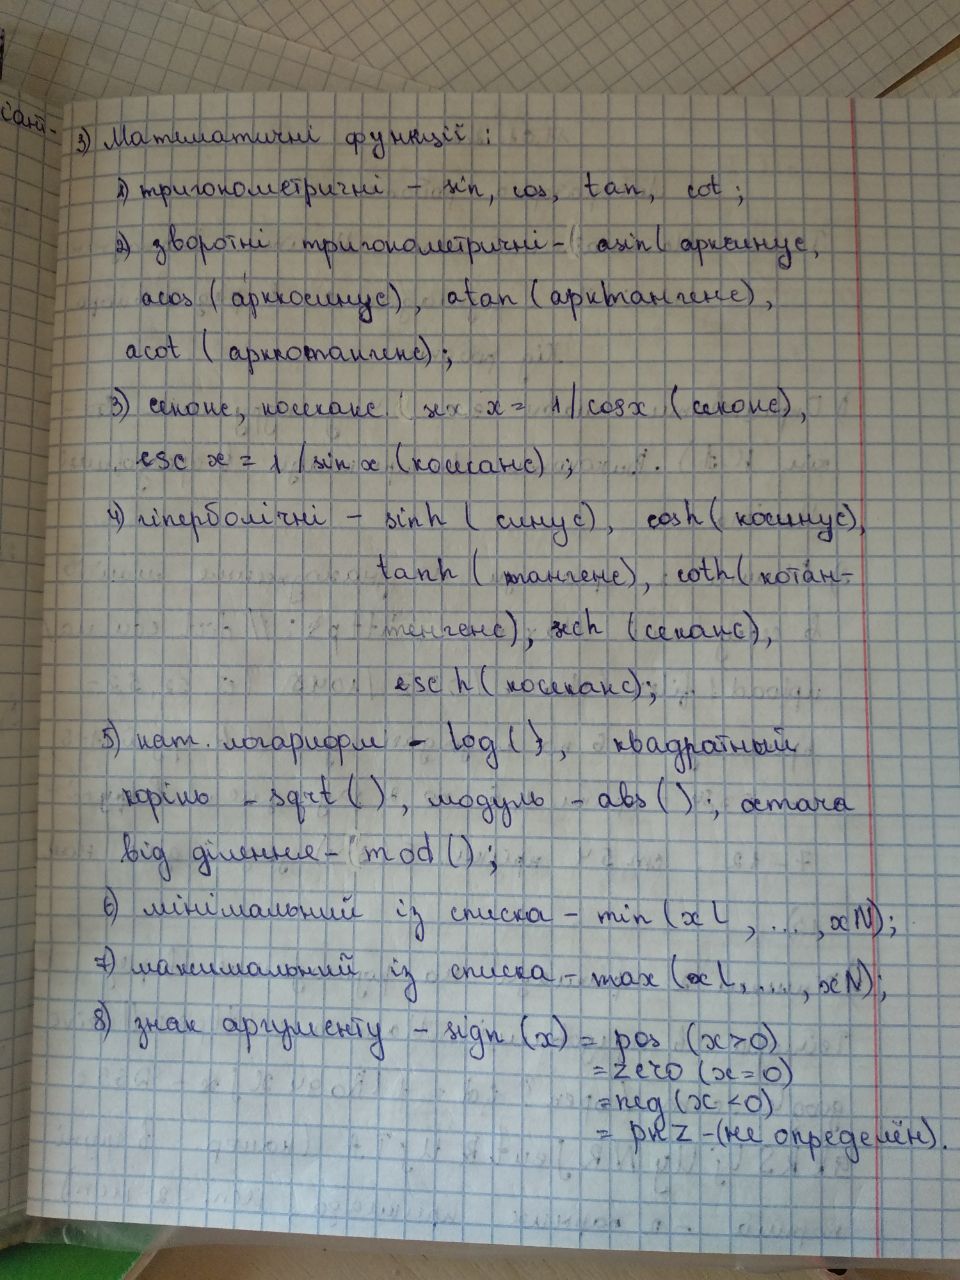 сант-
3) Математичні функції:
1) тригонометричні - sin, cos, tan, cot;
2) зворотні тригонометричні - asin (арксинус,
acos (арккосинус), atan (арктангенс),
acot (арккотангенс);
3) секанс, косеканс sec x = 1/cosx (секанс),
csc x = 1/sin x (косеканс);
4) гіперболічні - sinh (синус), cosh (косинус),
tanh (тангенс), coth (котан-
тенгенс), sech (секанс),
csch (косеканс);
5) нат. логарифм - log(), квадратный
корінь - sqrt(), модуль - abs(); остача
від ділення - mod();
6) мінімальний із списка - min (x1, ..., xN);
7) максимальний із списка - max (x1, ..., xN);
8) знак аргументу - sign (x) = pos (x>0)
= zero (x=0)
= neg (x<0)
= pnz - (не определён).